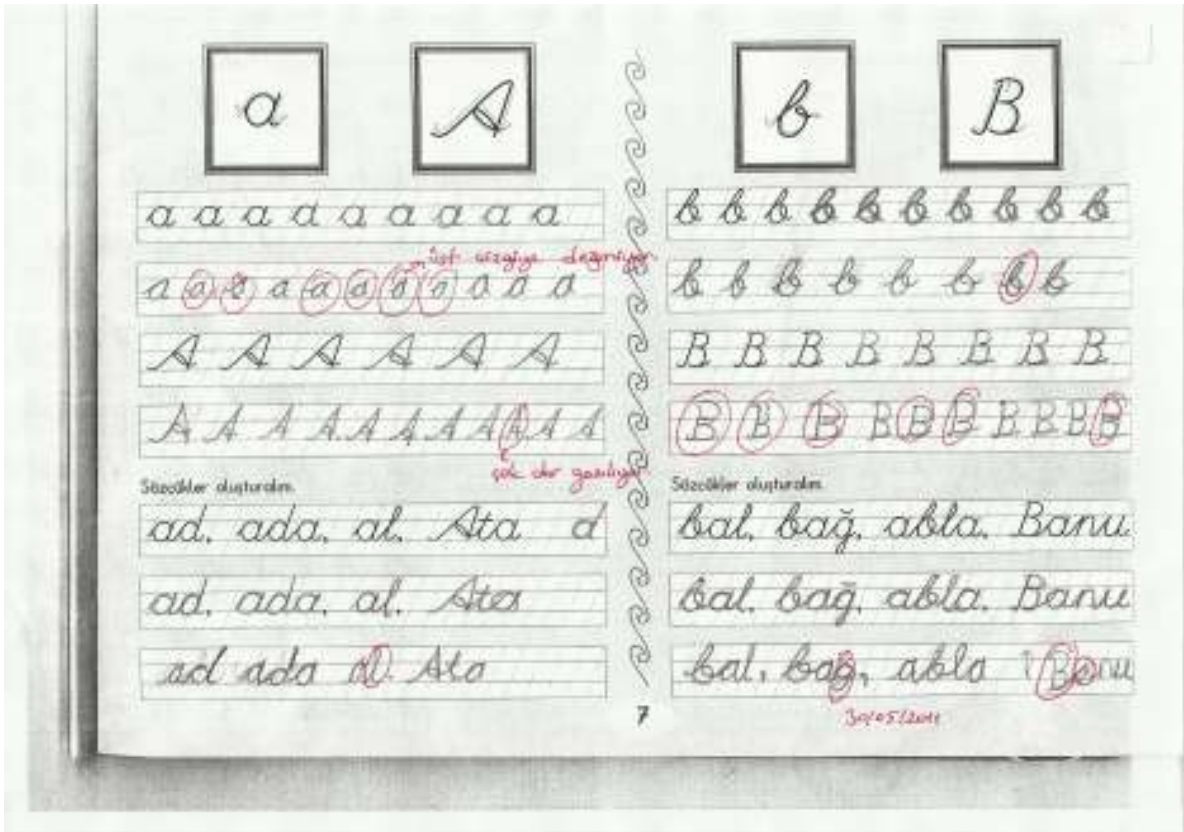 a A
a a a a a a a a a
üst çizgiye değmiyor
a a a a a a a a a a a
A A A A A A
A A A A A A A A A A A
çok dar yazılıyor
Sözcükler oluşturalım.
ad, ada, al, Ata a
ad, ada, al, Ata
ad ada al. Ata
b B
b b b b b b b b b b
b b b b b b b b
B B B B B B B B
B B B B B B B B B B
Sözcükler oluşturalım.
bal, bağ, abla, Banu
bal, bağ, abla, Banu
bal, bağ, abla Banu
7
30/05/2011